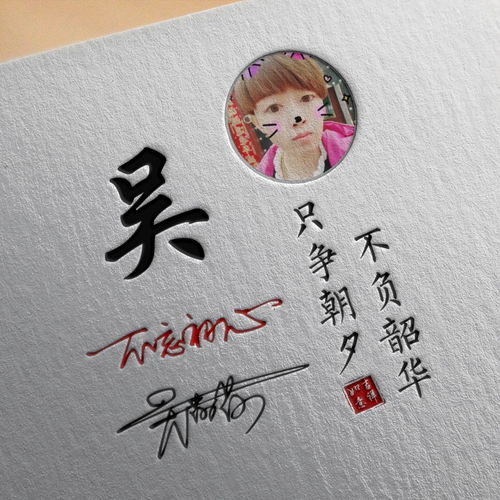 吴
不忘初心
只争朝夕
不负韶华
吉祥
如意